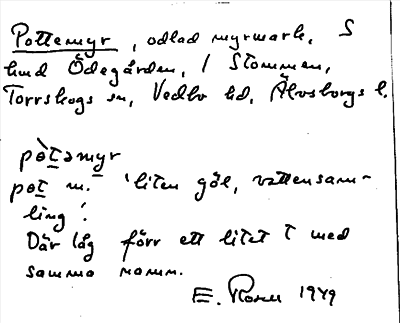 Pottemyr, odlad myrmark, S
hmd Ödegården, 1 Stommen,
Torrskogs sn, Vedbo hd, Älvsborgs l.
pòtəmyr
pot m. 'liten göl, vattensam-
ling'.
Där låg förr ett litet t med
samma namn.
E. Rosen 1949